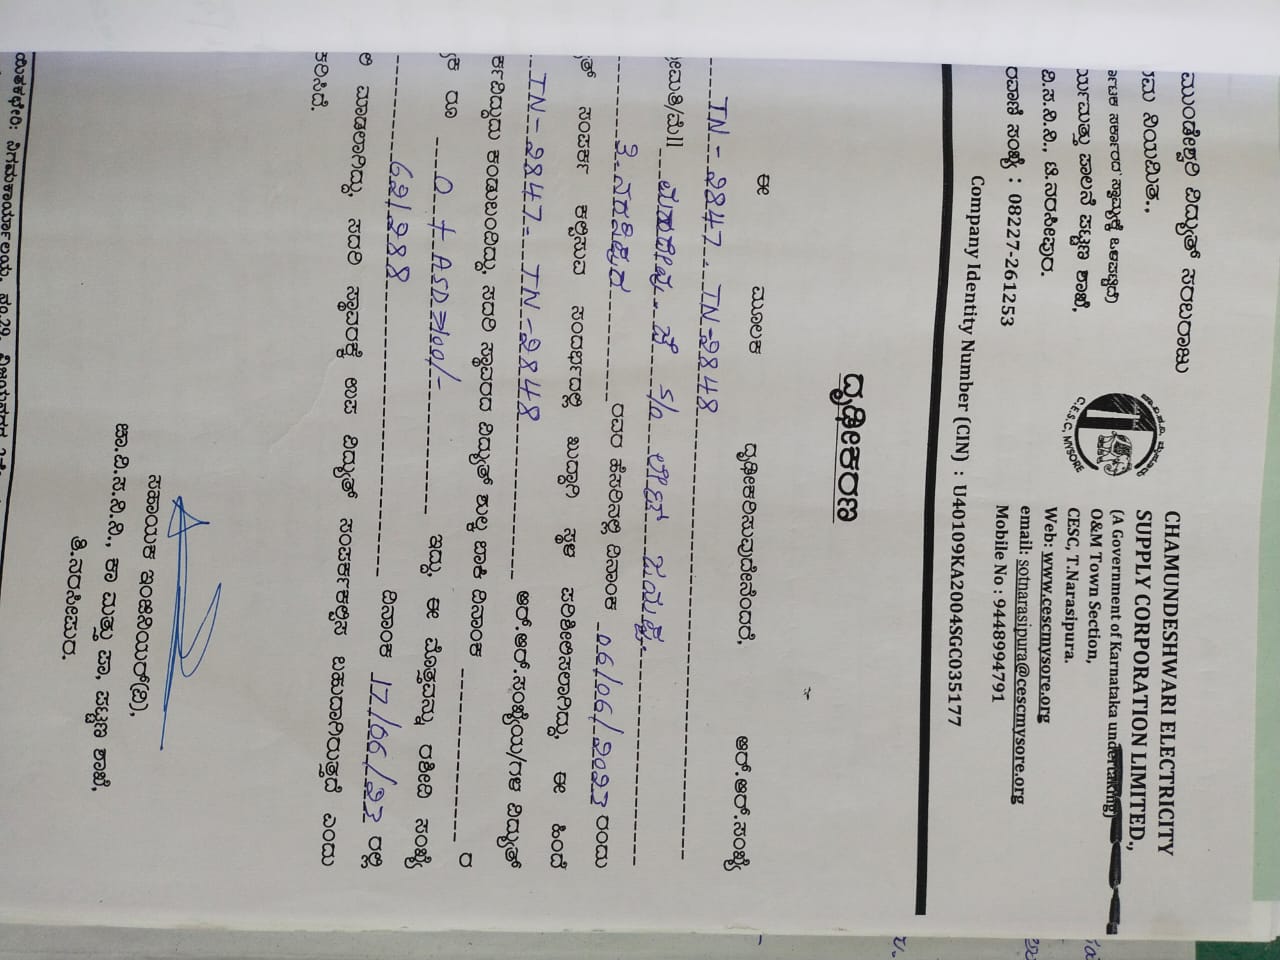 ಮುಂಡೇಶ್ವರಿ ವಿದ್ಯುತ್ ಸರಬರಾಜು
ನಿಯಮಿತ.,
ಸರ್ಕಾರದ ಸ್ವಾಮ್ಯಕ್ಕೆ ಒಳಪಟ್ಟಿದೆ)
ಮತ್ತು ಪಾಲನೆ ಪಟ್ಟಣ ಶಾಖೆ,
ವಿ.ಸ.ನಿ.ನಿ., ಟಿ.ನರಸೀಪುರ.
ಸಂಖ್ಯೆ : 08227-261253
C.E.S.C, MYSORE
CHAMUNDESHWARI ELECTRICITY
SUPPLY CORPORATION LIMITED.,
(A Government of Karnataka undertaking)
O&M Town Section,
CESC, T.Narasipura.
Web: www.cescmysore.org
email: sotnarasipura@cescmysore.org
Mobile No : 9448994791
Company Identity Number (CIN) : U40109KA2004SGC035177
ದೃಢೀಕರಣ
ಈ ಮೂಲಕ ದೃಢೀಕರಿಸುವುದೇನೆಂದರೆ, ಆರ್.ಆರ್.ಸಂಖ್ಯೆ
TN-2847 TN-2848
ಮಹದೇವ ಜೆ S/o ಲೇಟ್
ರವರ ಹೆಸರಿನಲ್ಲಿ ದಿನಾಂಕ 06/06/2023 ರಂದು
ಸಂಪರ್ಕ ಕಲ್ಪಿಸುವ ಸಂದರ್ಭದಲ್ಲಿ ಖುದ್ದಾಗಿ ಸ್ಥಳ ಪರಿಶೀಲಿಸಲಾಗಿದ್ದು, ಈ ಹಿಂದೆ
TN-2847 TN-2848 ಆರ್.ಆರ್.ಸಂಖ್ಯೆಯ/ಗಳ ವಿದ್ಯುತ್
ಕಂಡುಬಂದಿದ್ದು, ಸದರಿ ಸ್ಥಾವರದ ವಿದ್ಯುತ್ ಶುಲ್ಕ ಬಾಕಿ ದಿನಾಂಕ ರ
ರೂ 0 + ASD=100/- ಇದ್ದು, ಈ ಮೊತ್ತವನ್ನು ರಶೀದಿ ಸಂಖ್ಯೆ
621288 ದಿನಾಂಕ 17/06/23 ರಲ್ಲಿ
ಮಾಡಲಾಗಿದ್ದು, ಸದರಿ ಸ್ಥಾವರಕ್ಕೆ ಉಪ ವಿದ್ಯುತ್ ಸಂಪರ್ಕಕಲ್ಪಿಸ ಬಹುದಾಗಿರುತ್ತದೆ ಎಂದು
ಸಹಾಯಕ ಇಂಜಿನಿಯರ್(ವಿ),
ಚಾ.ವಿ.ಸ.ನಿ.ನಿ., ಕಾ ಮತ್ತು ಪಾ, ಪಟ್ಟಣ ಶಾಖೆ,
ತಿ.ನರಸೀಪುರ.